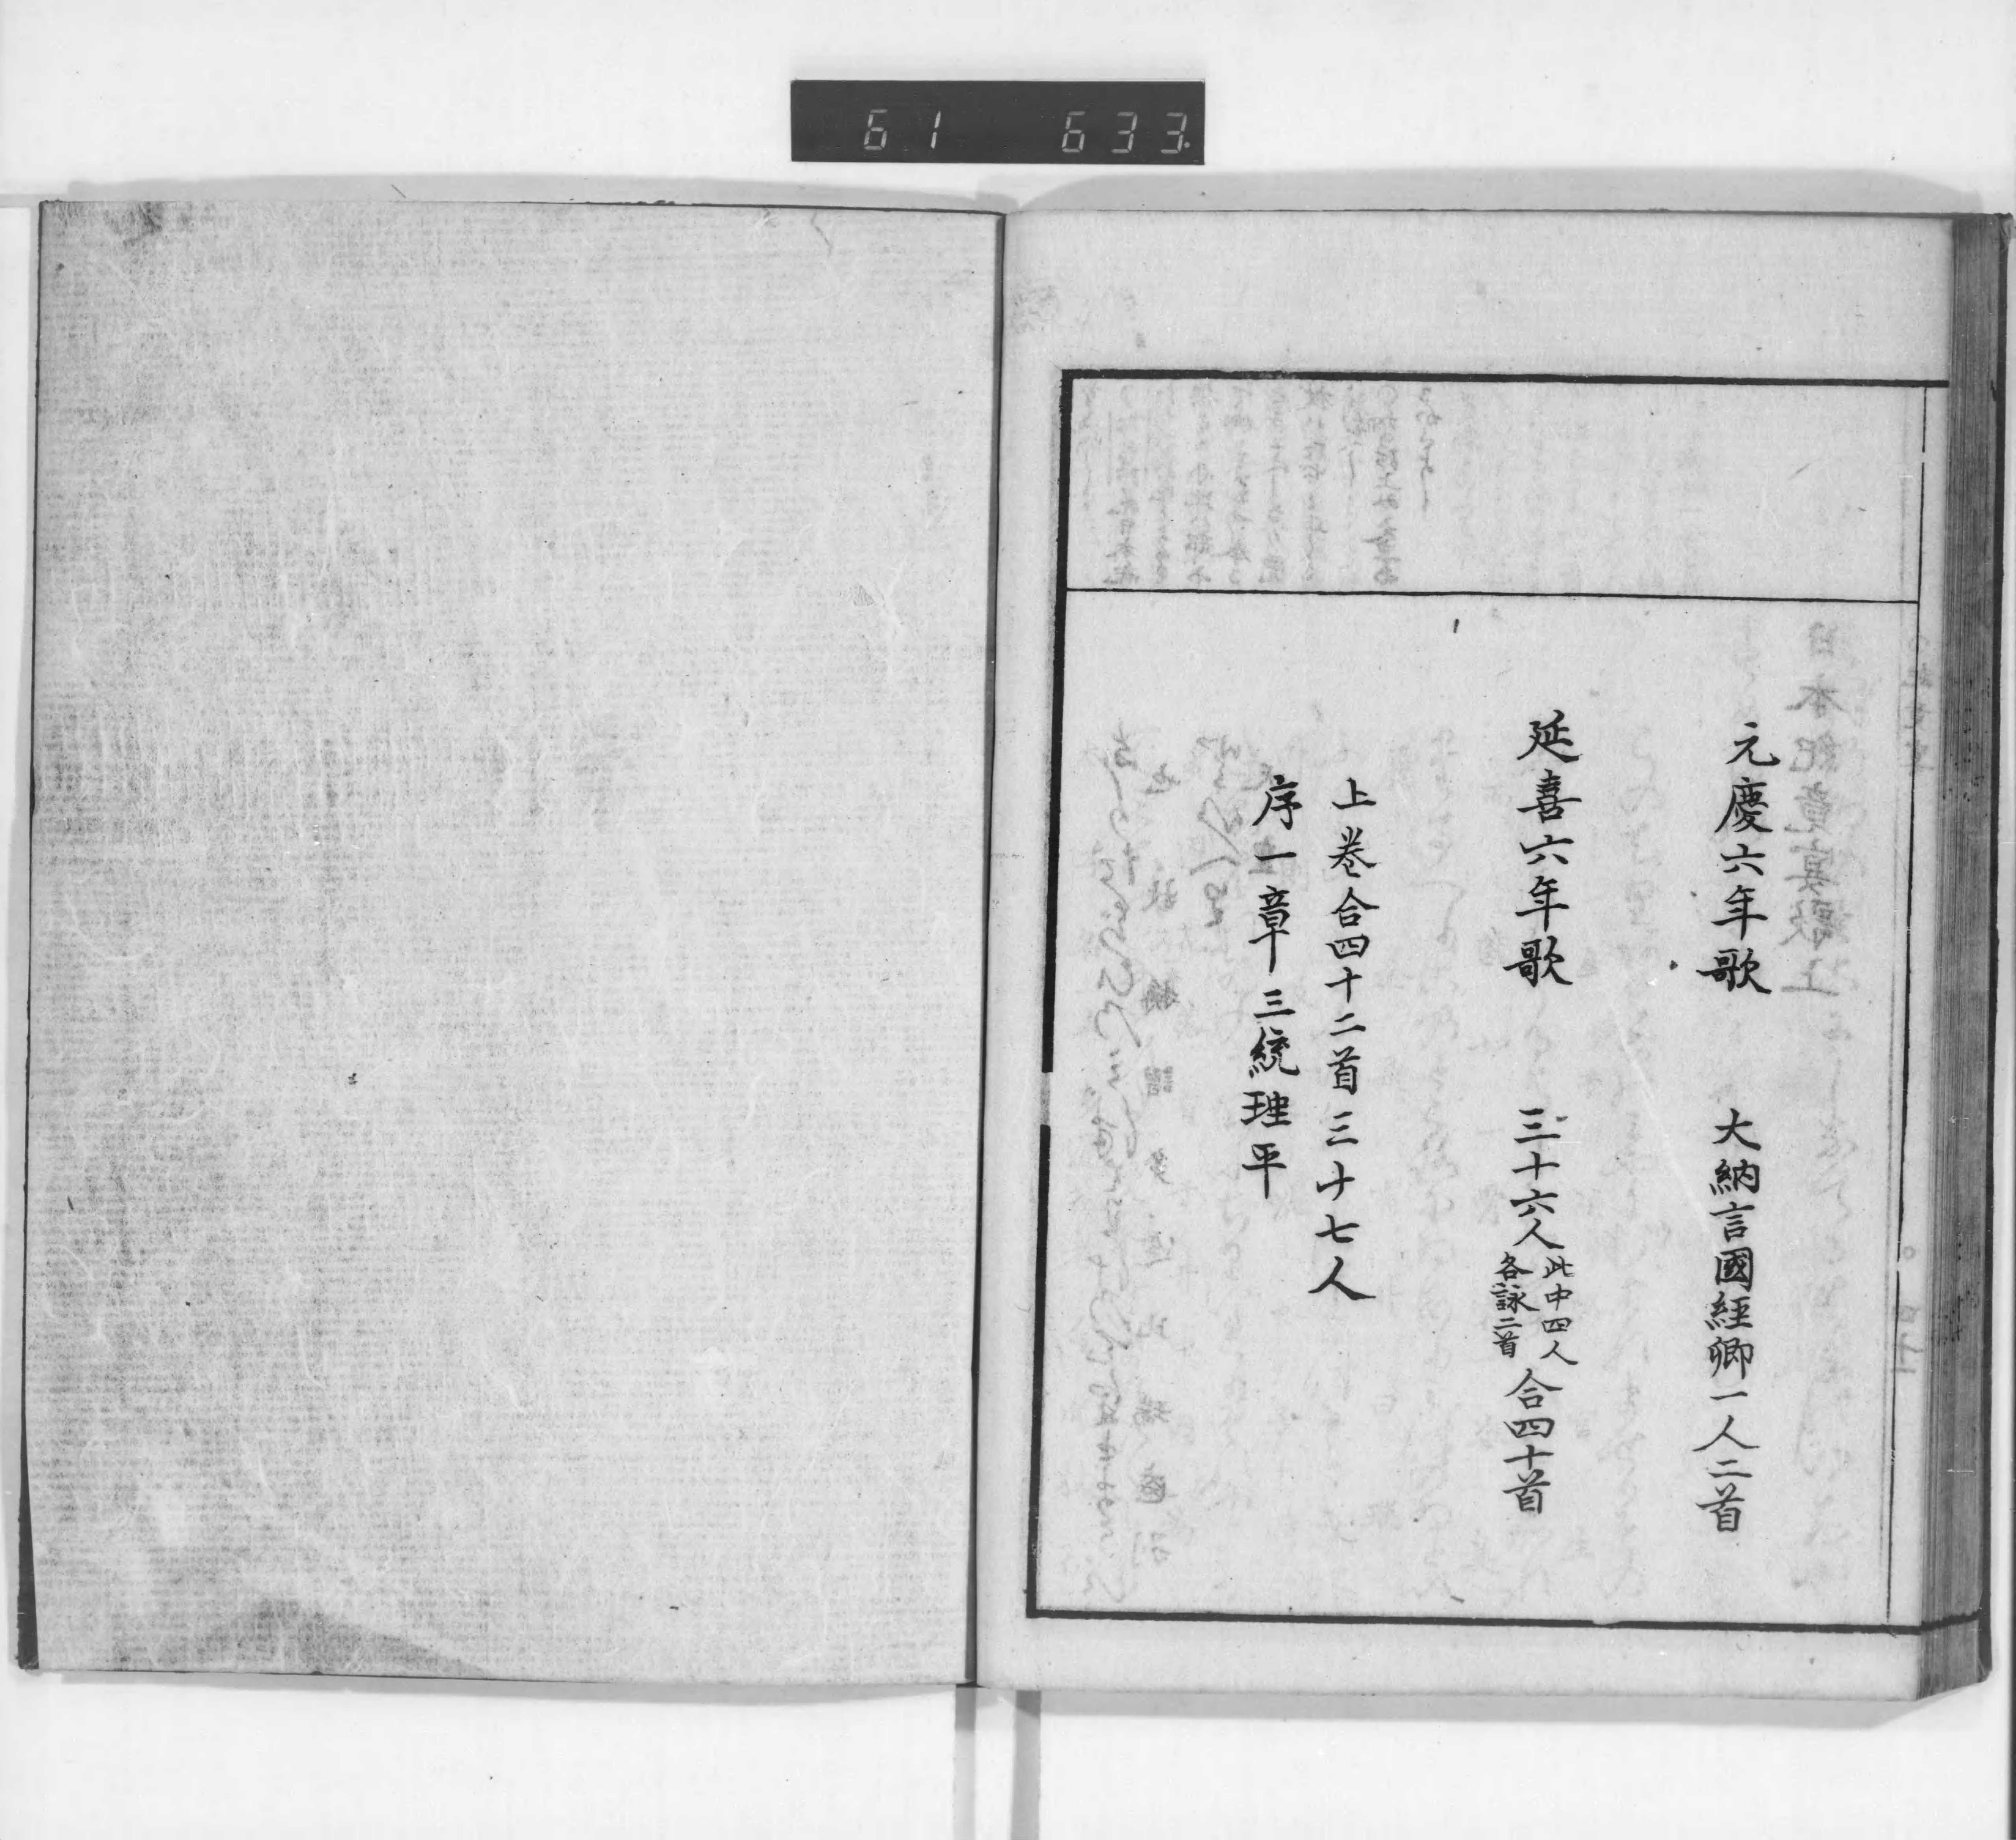 61 633
元慶六年歌 大納言國經卿一人二首
延喜六年歌 三十六人此中四人各詠二首合四十首
上巻合四十二首三十七人
序一章三統理平